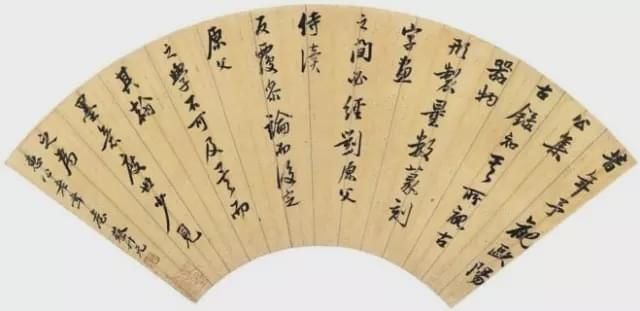 昔年予觀歐陽
公集
古錄知其所觀古
器物
形製量數篆刻
字畫
之間必經劉原父
侍讀
反覆咨論而後定
原父
之學不可及矣而
其翰
墨世少見
之為